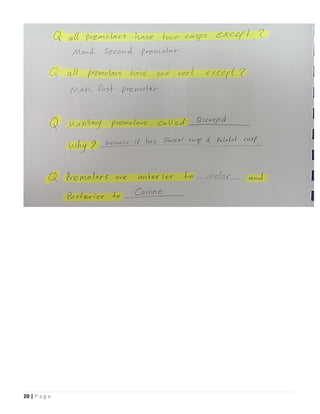 Q all premolars have two cusps except?
Mand. Second premolar
Q all premolars have one root except?
Maxi. first premolar
Q Maxillary premolars called Bicuspid
Why? because it has Buccal cusp & Palatal cusp
Q Premolars are anterior to molar and
Posterior to Canine
20 | Page